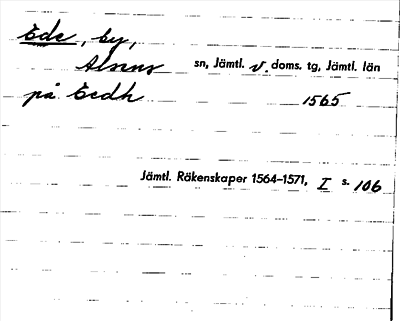 Ede, by,
Alsens sn, Jämtl. v. doms. tg, Jämtl. län
på Eedh 1565
Jämtl. Räkenskaper 1564–1571, I s. 106